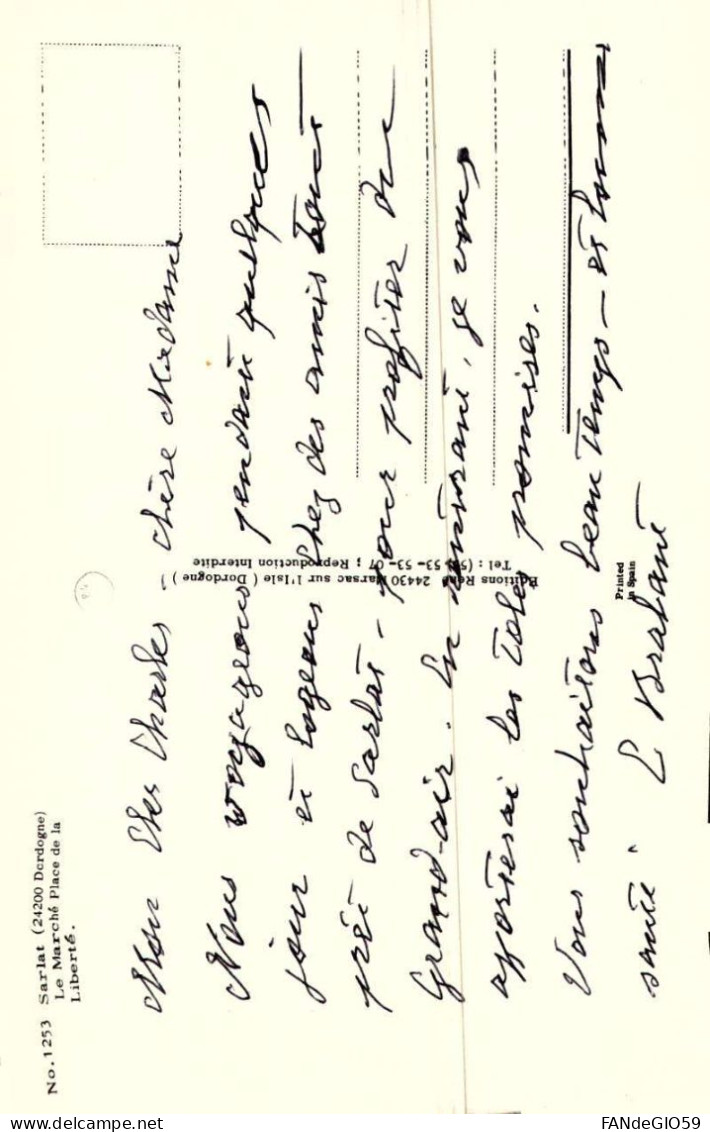 No. 1253 Sarlat (24200 Dordogne)
Le Marché Place de la
Liberté.
Mon cher Charles - chère Madame
Nous voyageons pendant quelques
jour et logeons chez des amis tout
prêt de Sarlat - pour profiter du
Grand-air. En rentrant, je vous
apporterai les toles promises.
Vous souhaitons beau temps - et bonne
santé. L Brabant
Editions René 24430 Marsac sur l'Isle ( Dordogne )
Tel : (53) 53-53-07 ; Reproduction Interdite
Printed
in Spain
FANdeGIO59